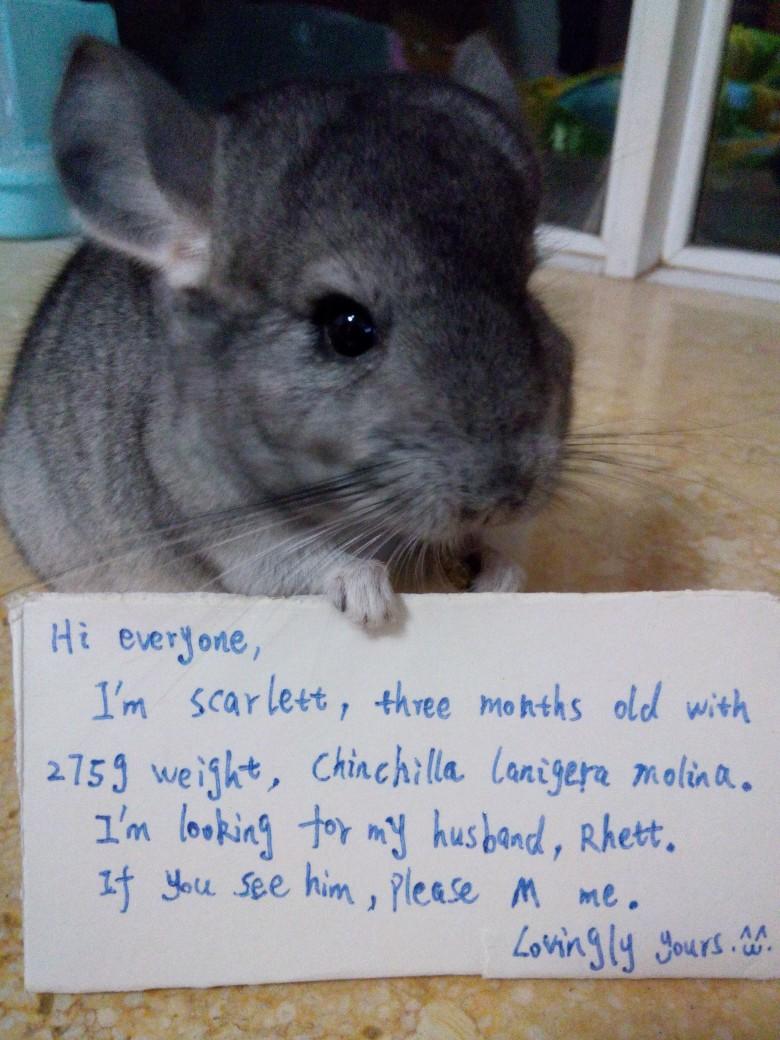 Hi everyone,
I'm scarlett, three months old with
275g weight, Chinchilla lanigera molina.
I'm looking for my husband, Rhett.
If you see him, please M me.
Lovingly yours.^ω^.